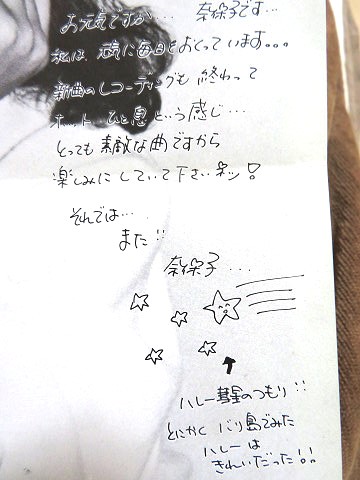 お元気ですか… 奈保子です…
私は、元気に毎日をおくっています。。。
新曲のレコーディングも 終わって
ホット… ひと息という感じ…
とっても 素敵な曲ですから
楽しみに していて下さいネッ!
それでは…
また!!
奈保子…
ハレー彗星のつもり!!
とにかく バリ島でみた
ハレーは
きれいだった!!